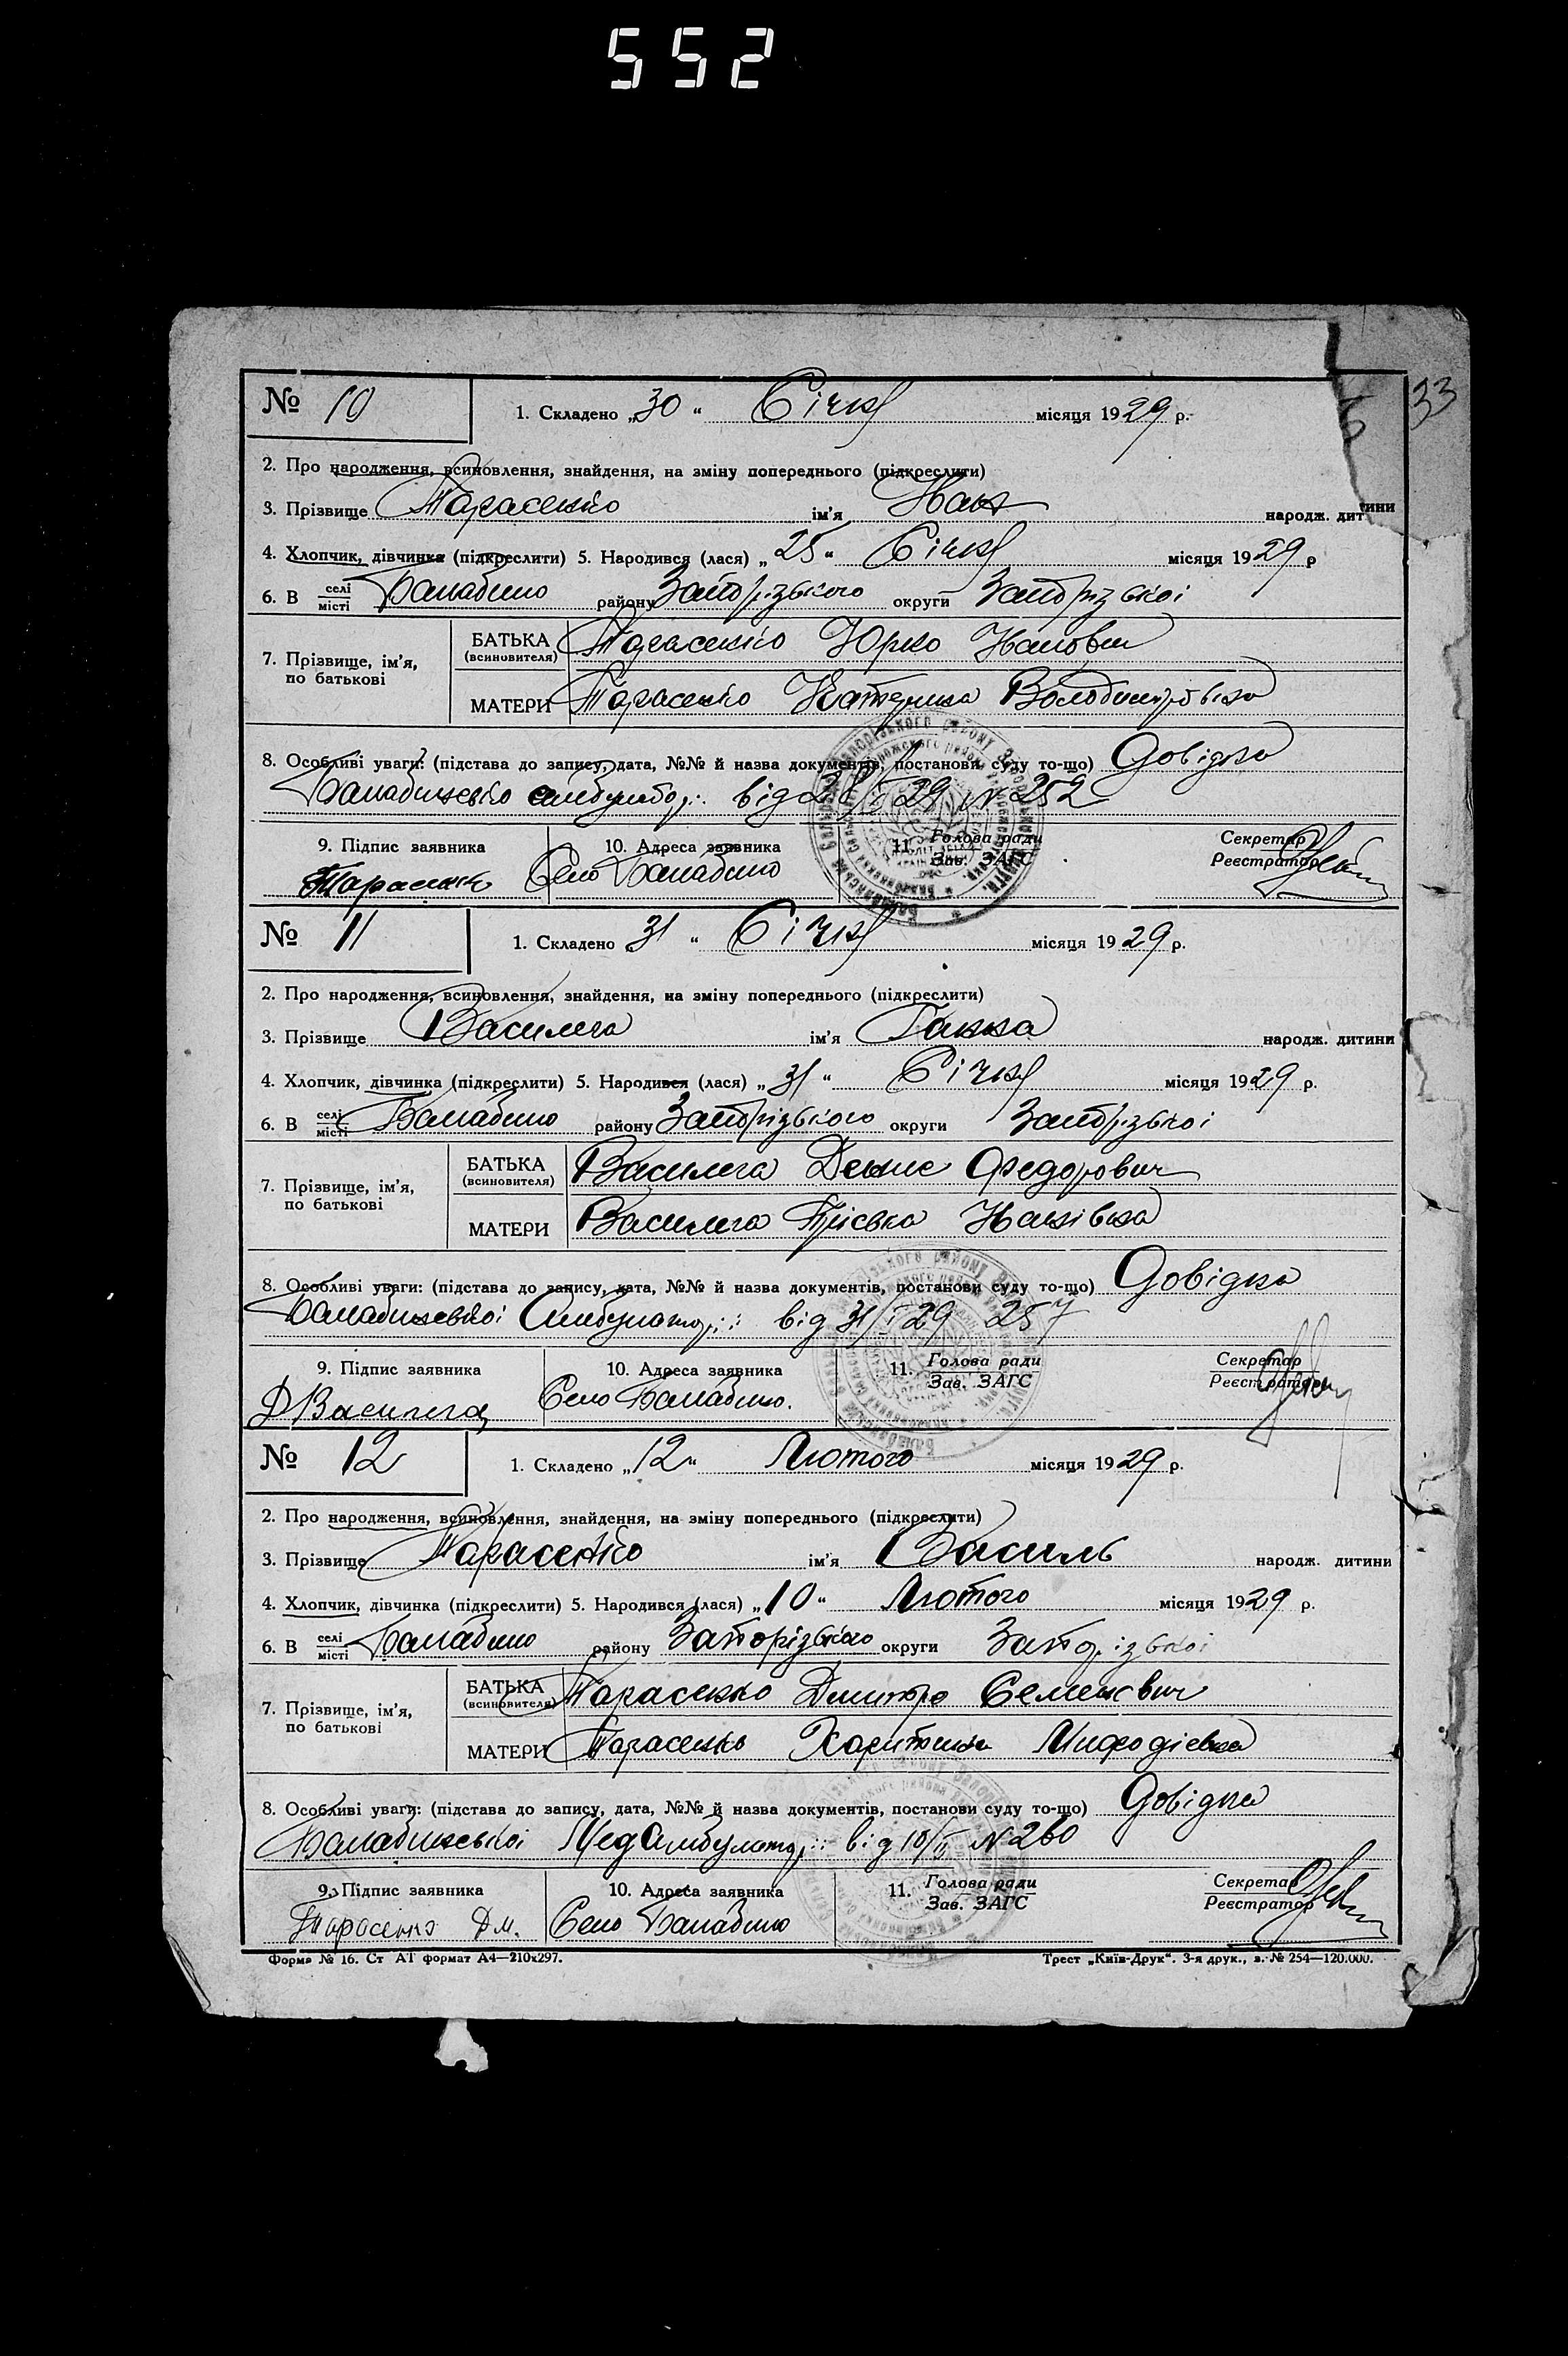 552
33
№ 10 1. Складено „30“ Січня місяця 1929 р.
2. Про народження, всиновлення, знайдення, на зміну попереднього (підкреслити)
3. Прізвище Тарасенко ім'я народж. дитини
4. Хлопчик, дівчинка (підкреслити) 5. Народився (лася) „25“ Січня місяця 1929 р
6. В селі місті Балабино району Запорізького округи Запорізької
7. Прізвище, ім'я, по батькові
БАТЬКА (всиновителя) Тарасенко Юрко
МАТЕРИ Тарасенко Катерина Володимирівна
8. Особливі уваги: (підстава до запису, дата, №№ й назва документів, постанови суду то-що) Довідка
від 29 N 252
9. Підпис заявника 10. Адреса заявника 11. Голова ради Зав. ЗАГС Секретар Реєстратор
Тарасенко Село Балабино
№ 11 1. Складено „31“ Січня місяця 1929 р.
2. Про народження, всиновлення, знайдення, на зміну попереднього (підкреслити)
3. Прізвище Василега ім'я Ганна народж. дитини
4. Хлопчик, дівчинка (підкреслити) 5. Народився (лася) „31“ Січня місяця 1929 р.
6. В селі місті Балабино району Запорізького округи Запорізької
7. Прізвище, ім'я, по батькові
БАТЬКА (всиновителя) Василега Денис Федорович
МАТЕРИ Василега
8. Особливі уваги: (підстава до запису, дата, №№ й назва документів, постанови суду то-що) Довідка
Балабинської Амбулатор. від 31/I 29 257
9. Підпис заявника 10. Адреса заявника 11. Голова ради Зав. ЗАГС Секретар Реєстратор
Д Василега Село Балабино.
№ 12 1. Складено „12“ Лютого місяця 1929 р.
2. Про народження, всиновлення, знайдення, на зміну попереднього (підкреслити)
3. Прізвище Тарасенко ім'я Василь народж. дитини
4. Хлопчик, дівчинка (підкреслити) 5. Народився (лася) „10“ Лютого місяця 1929 р.
6. В селі місті Балабино району Запорізького округи Запорізької
7. Прізвище, ім'я, по батькові
БАТЬКА (всиновителя) Тарасенко Дмитро Семенович
МАТЕРИ Тарасенко Харитина Мифодіевна
8. Особливі уваги: (підстава до запису, дата, №№ й назва документів, постанови суду то-що) Довідка
Балабинської МедАмбулатор. від 10/II N 260
9. Підпис заявника 10. Адреса заявника 11. Голова ради Зав. ЗАГС Секретар Реєстратор
Тарасенко Дм. Село Балабино
Форма № 16. Ст АТ формат А4—210х297. Трест „Київ-Друк“. 3-я друк., з. № 254—120.000.